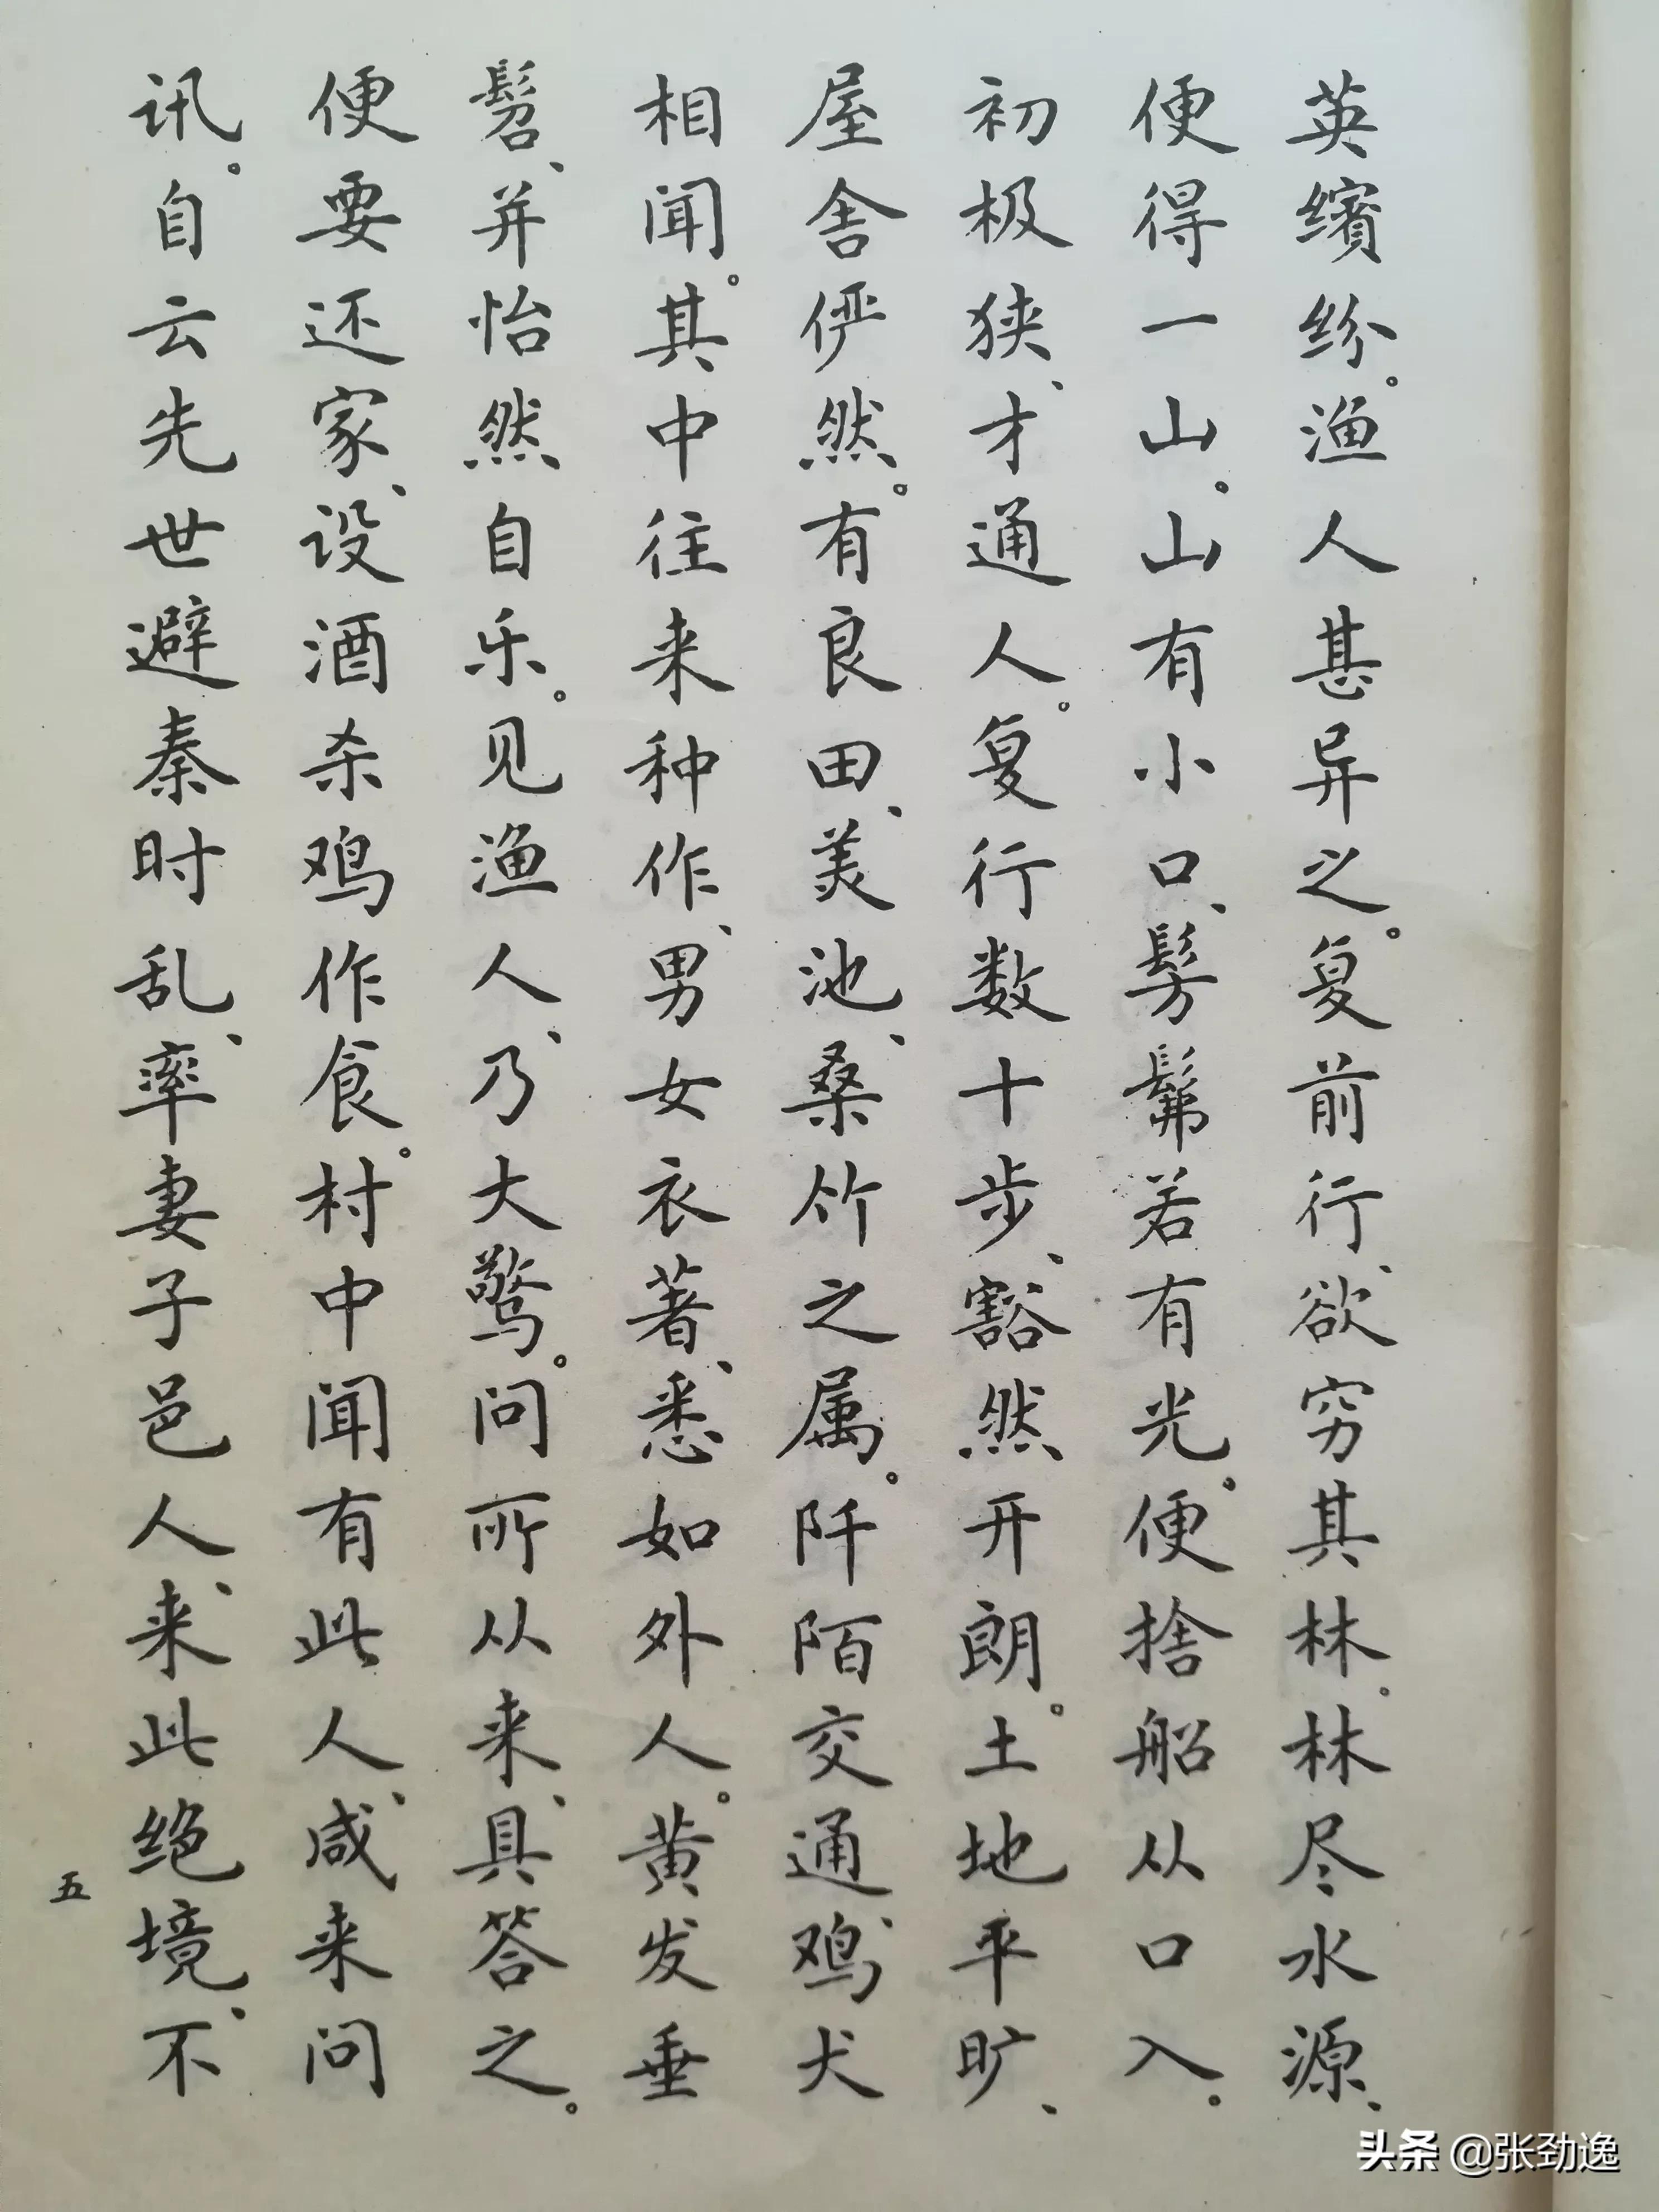 英缤纷。渔人甚异之。复前行、欲穷其林。林尽水源、
便得一山。山有小口、髣髴若有光。便捨船从口入。
初极狭、才通人。复行数十步、豁然开朗。土地平旷、
屋舍俨然。有良田、美池、桑竹之属。阡陌交通、鸡犬
相闻。其中往来种作、男女衣著、悉如外人。黄发垂
髫、并怡然自乐。见渔人、乃大驚。问所从来、具答之。
便要还家、设酒杀鸡作食。村中闻有此人、咸来问
讯。自云先世避秦时乱、率妻子邑人、来此绝境、不
五
头条 @张劲逸